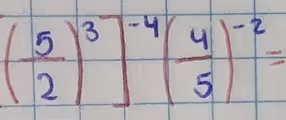 (5/2)^3]^-4 (4/5)^-2 =